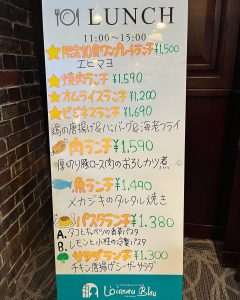 LUNCH
11:00〜15:00
限定10食ワンプレートランチ ¥1,500
エビマヨ
焼肉ランチ ¥1.590
オムライスランチ ¥1.200
ビジネスランチ ¥1.690
鶏の唐揚げ&ハンバーグ&海老フライ
肉ランチ ¥1.590
厚切り豚ロース肉のおろしかり煮
魚ランチ ¥1,490
メカジキのタルタル焼き
パスタランチ ¥1.380
A. タコとキャベツの パスタ
B. レモンと小柱の冷製パスタ
サラダランチ ¥1.300
チキン唐揚げシーザーサラダ
Loiseau Bleu